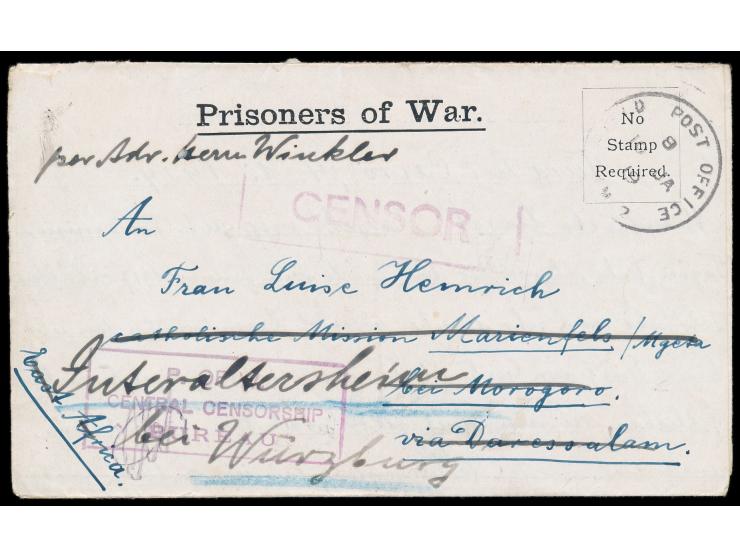 Prisoners of War.
No
Stamp
Required.
POST OFFICE
per Adr. Herrn Winkler
CENSOR
An
Frau Luise Hemrich
catholische Mission Marienfels / Mgeta
Interaltersheim
bei Morogoro.
P. OF
CENTRAL CENSORSHIP
BUREAU
bei Würzburg
via Daressalam.
East Africa.